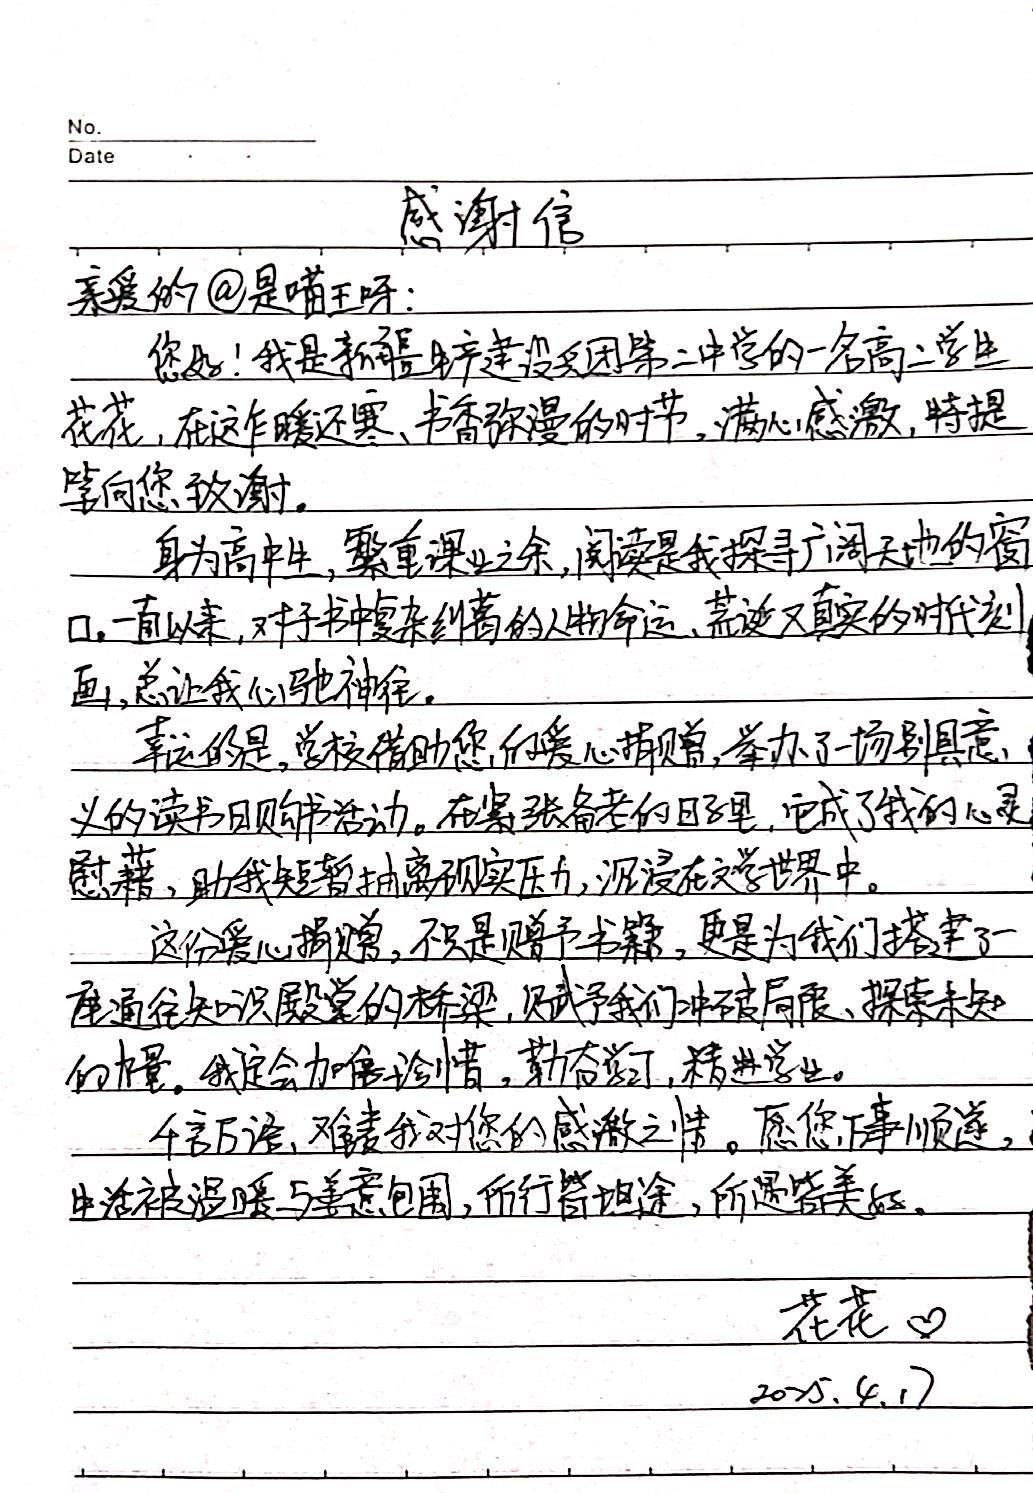 No.
Date
感谢信
亲爱的@是喵王呀：
您好！我是新疆生产建设兵团第二中学的一名高二学生
花花，在这乍暖还寒、书香弥漫的时节，满心感激，特提
笔向您致谢。
身为高中生，繁重课业之余，阅读是我探寻广阔天地的窗
口。一直以来，对于书中复杂纠葛的人物命运、荒诞又真实的时代刻
画，总让我心驰神往。
幸运的是，学校借助您的爱心捐赠，举办了一场别具意
义的读书日购书活动。在紧张备考的日子里，它成了我的心灵
慰藉，助我短暂抽离现实压力，沉浸在文学世界中。
这份爱心捐赠，不只是赠予书籍，更是为我们搭建了一
座通往知识殿堂的桥梁，赋予我们冲破局限、探索未知
的力量。我定会加倍珍惜，勤奋学习，精进学业。
千言万语，难表我对您的感激之情。愿您万事顺遂，
生活被温暖与善意包围，所行皆坦途，所遇皆美好。
花花♡
2025.4.17